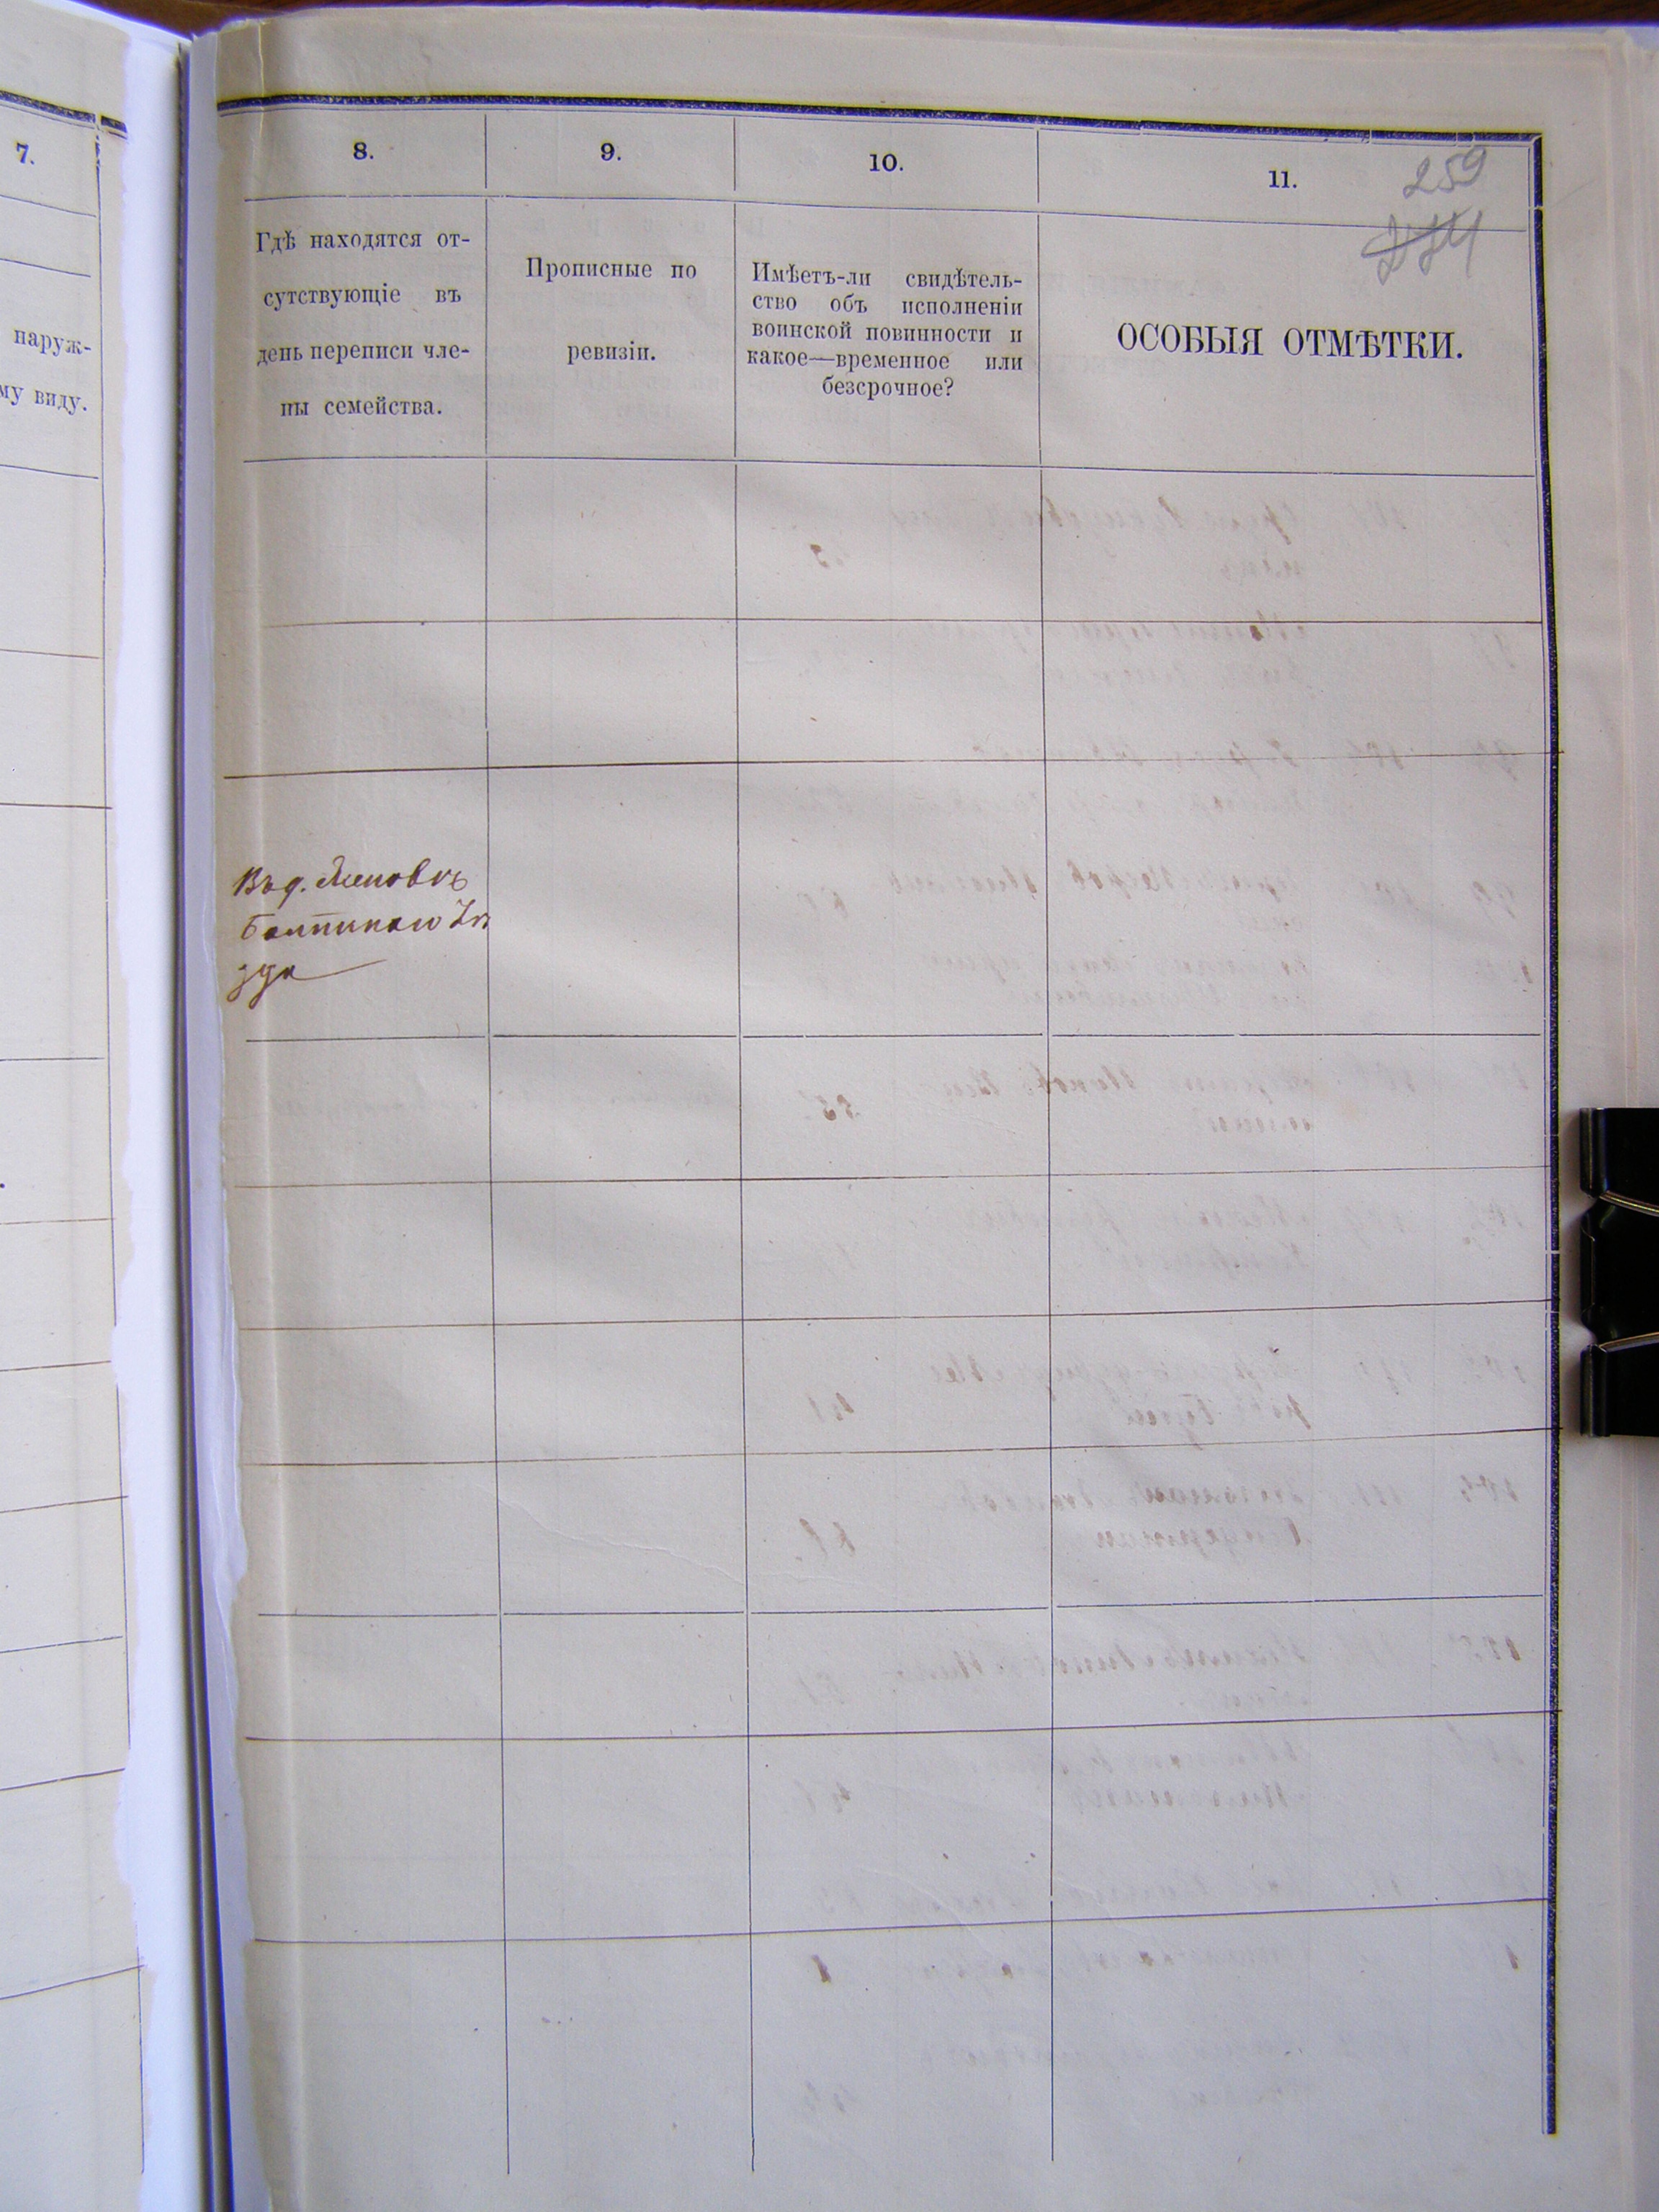 7.
наруж-
му виду.
8.
9.
10.
11.
259
Гдѣ находятся от-
сутствующіе въ
день переписи чле-
ны семейства.
Прописные по
ревизіи.
Имѣетъ-ли свидѣтель-
ство объ исполненіи
воинской повинности и
какое—временное или
безсрочное?
ОСОБЫЯ ОТМѢТКИ.
Въ д.
Балтскаго Уѣ
зда